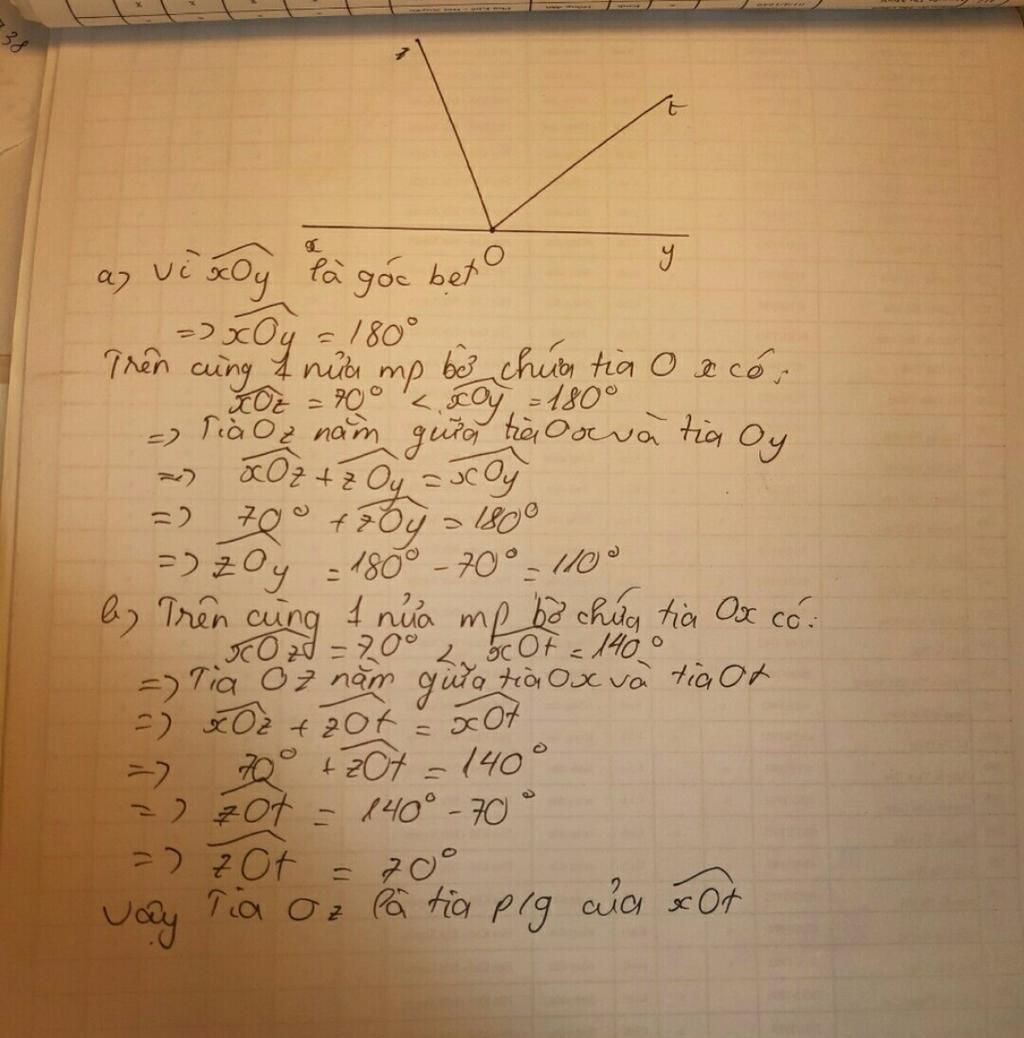 38
z
t
x
O
y
a) Vì xOy là góc bẹt
=> xOy = 180°
Trên cùng 1 nửa mp bờ chứa tia Ox có:
xOz = 70° < xOy = 180°
=> Tia Oz nằm giữa tia Ox và tia Oy
=> xOz + zOy = xOy
=> 70° + zOy = 180°
=> zOy = 180° - 70° = 110°
b) Trên cùng 1 nửa mp bờ chứa tia Ox có:
xOz = 70° < xOt = 140°
=> Tia Oz nằm giữa tia Ox và tia Ot
=> xOz + zOt = xOt
=> 70° + zOt = 140°
=> zOt = 140° - 70°
=> zOt = 70°
Vậy Tia Oz là tia p/g của xOt